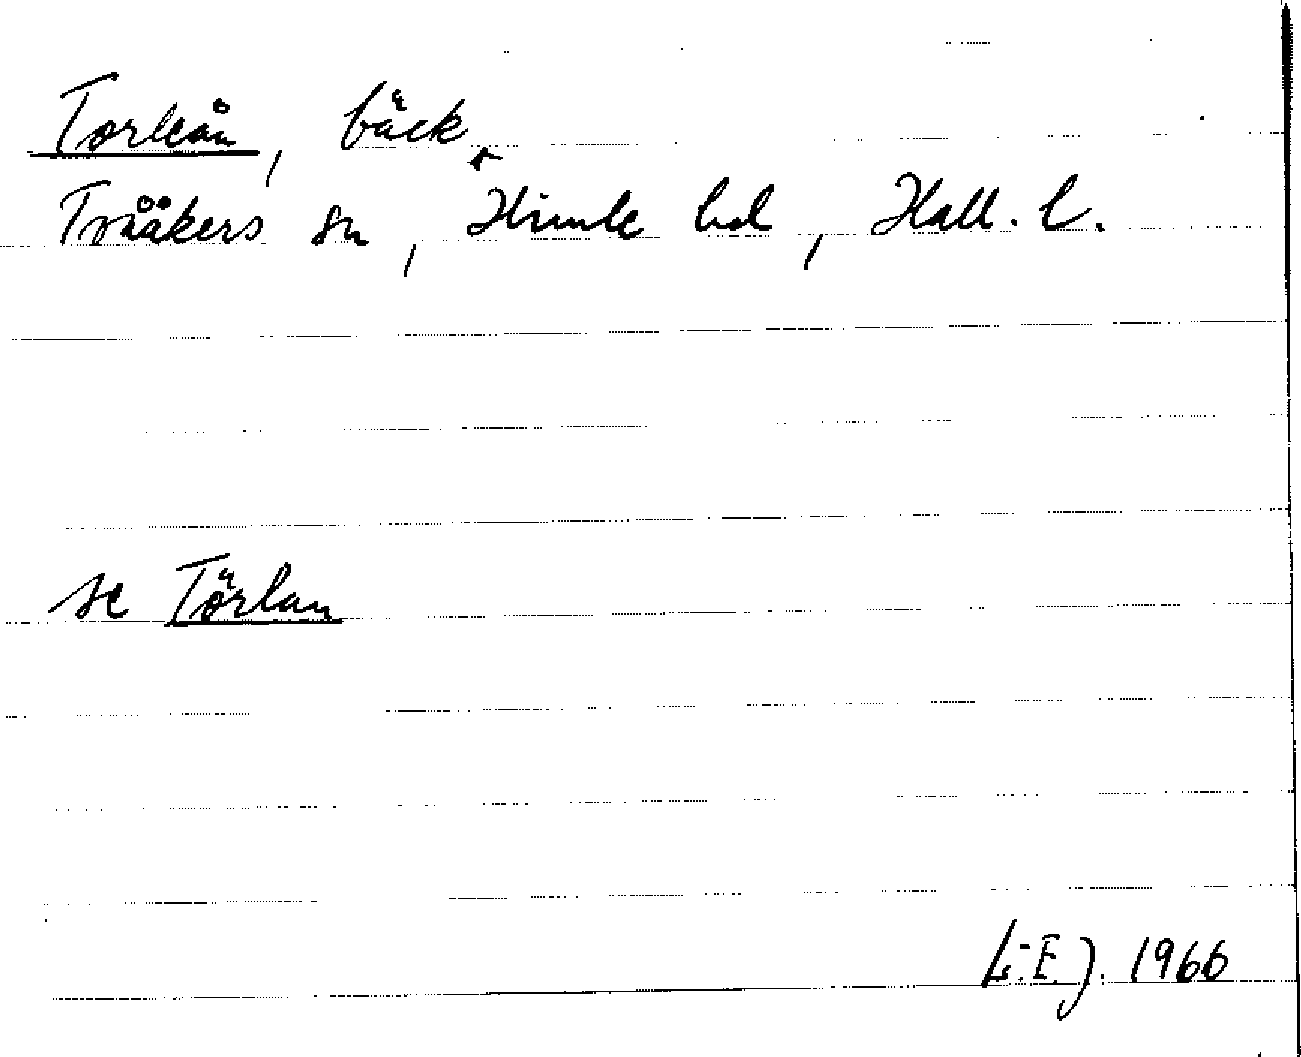 Torleån, bäck,
Tvååkers sn, Himle hd, Hall. l.
se Törlan
L.-E. J. 1966